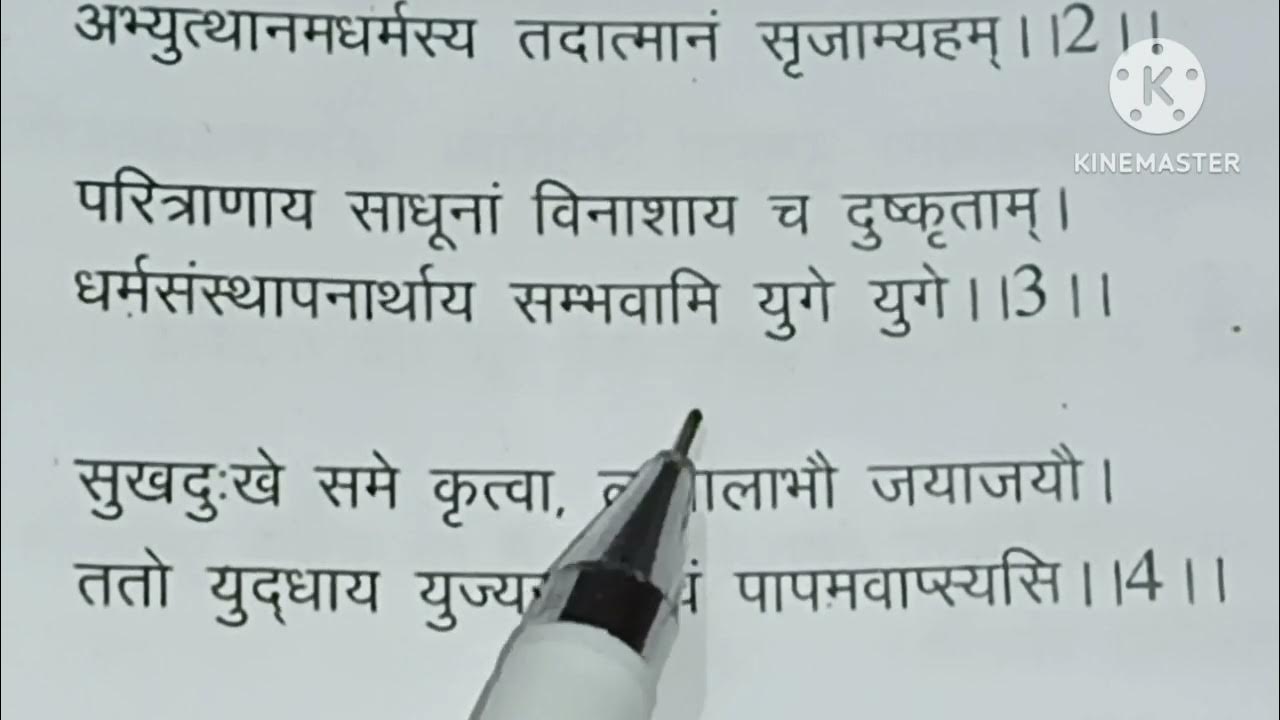 अभ्युत्थानमधर्मस्य तदात्मानं सृजाम्यहम्।।2।।
K
KINEMASTER
परित्राणाय साधूनां विनाशाय च दुष्कृताम्।
धर्मसंस्थापनार्थाय सम्भवामि युगे युगे।।3।।
सुखदुःखे समे कृत्वा, जयाजयौ।
ततो युद्धाय पापमवाप्स्यसि।।4।।